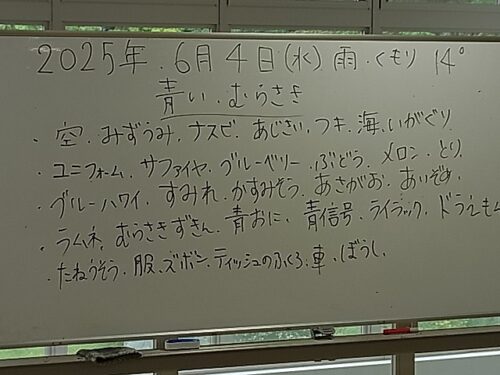 2025年.6月4日(水)雨.くもり 14°
青い.むらさき
・空.みずうみ.ナスビ.あじさい.フキ.海.いがぐり
・ユニフォーム.サファイヤ.ブルーベリー.ぶどう.メロン.とり
・ブルーハワイ.すみれ.かすみそう.あさがお.あいぞめ
・ラムネ.むらさきずきん.青おに.青信号.ライラック.ドラえもん
・たねうそう.服.ズボン.ティッシュのふくろ.車.ぼうし.